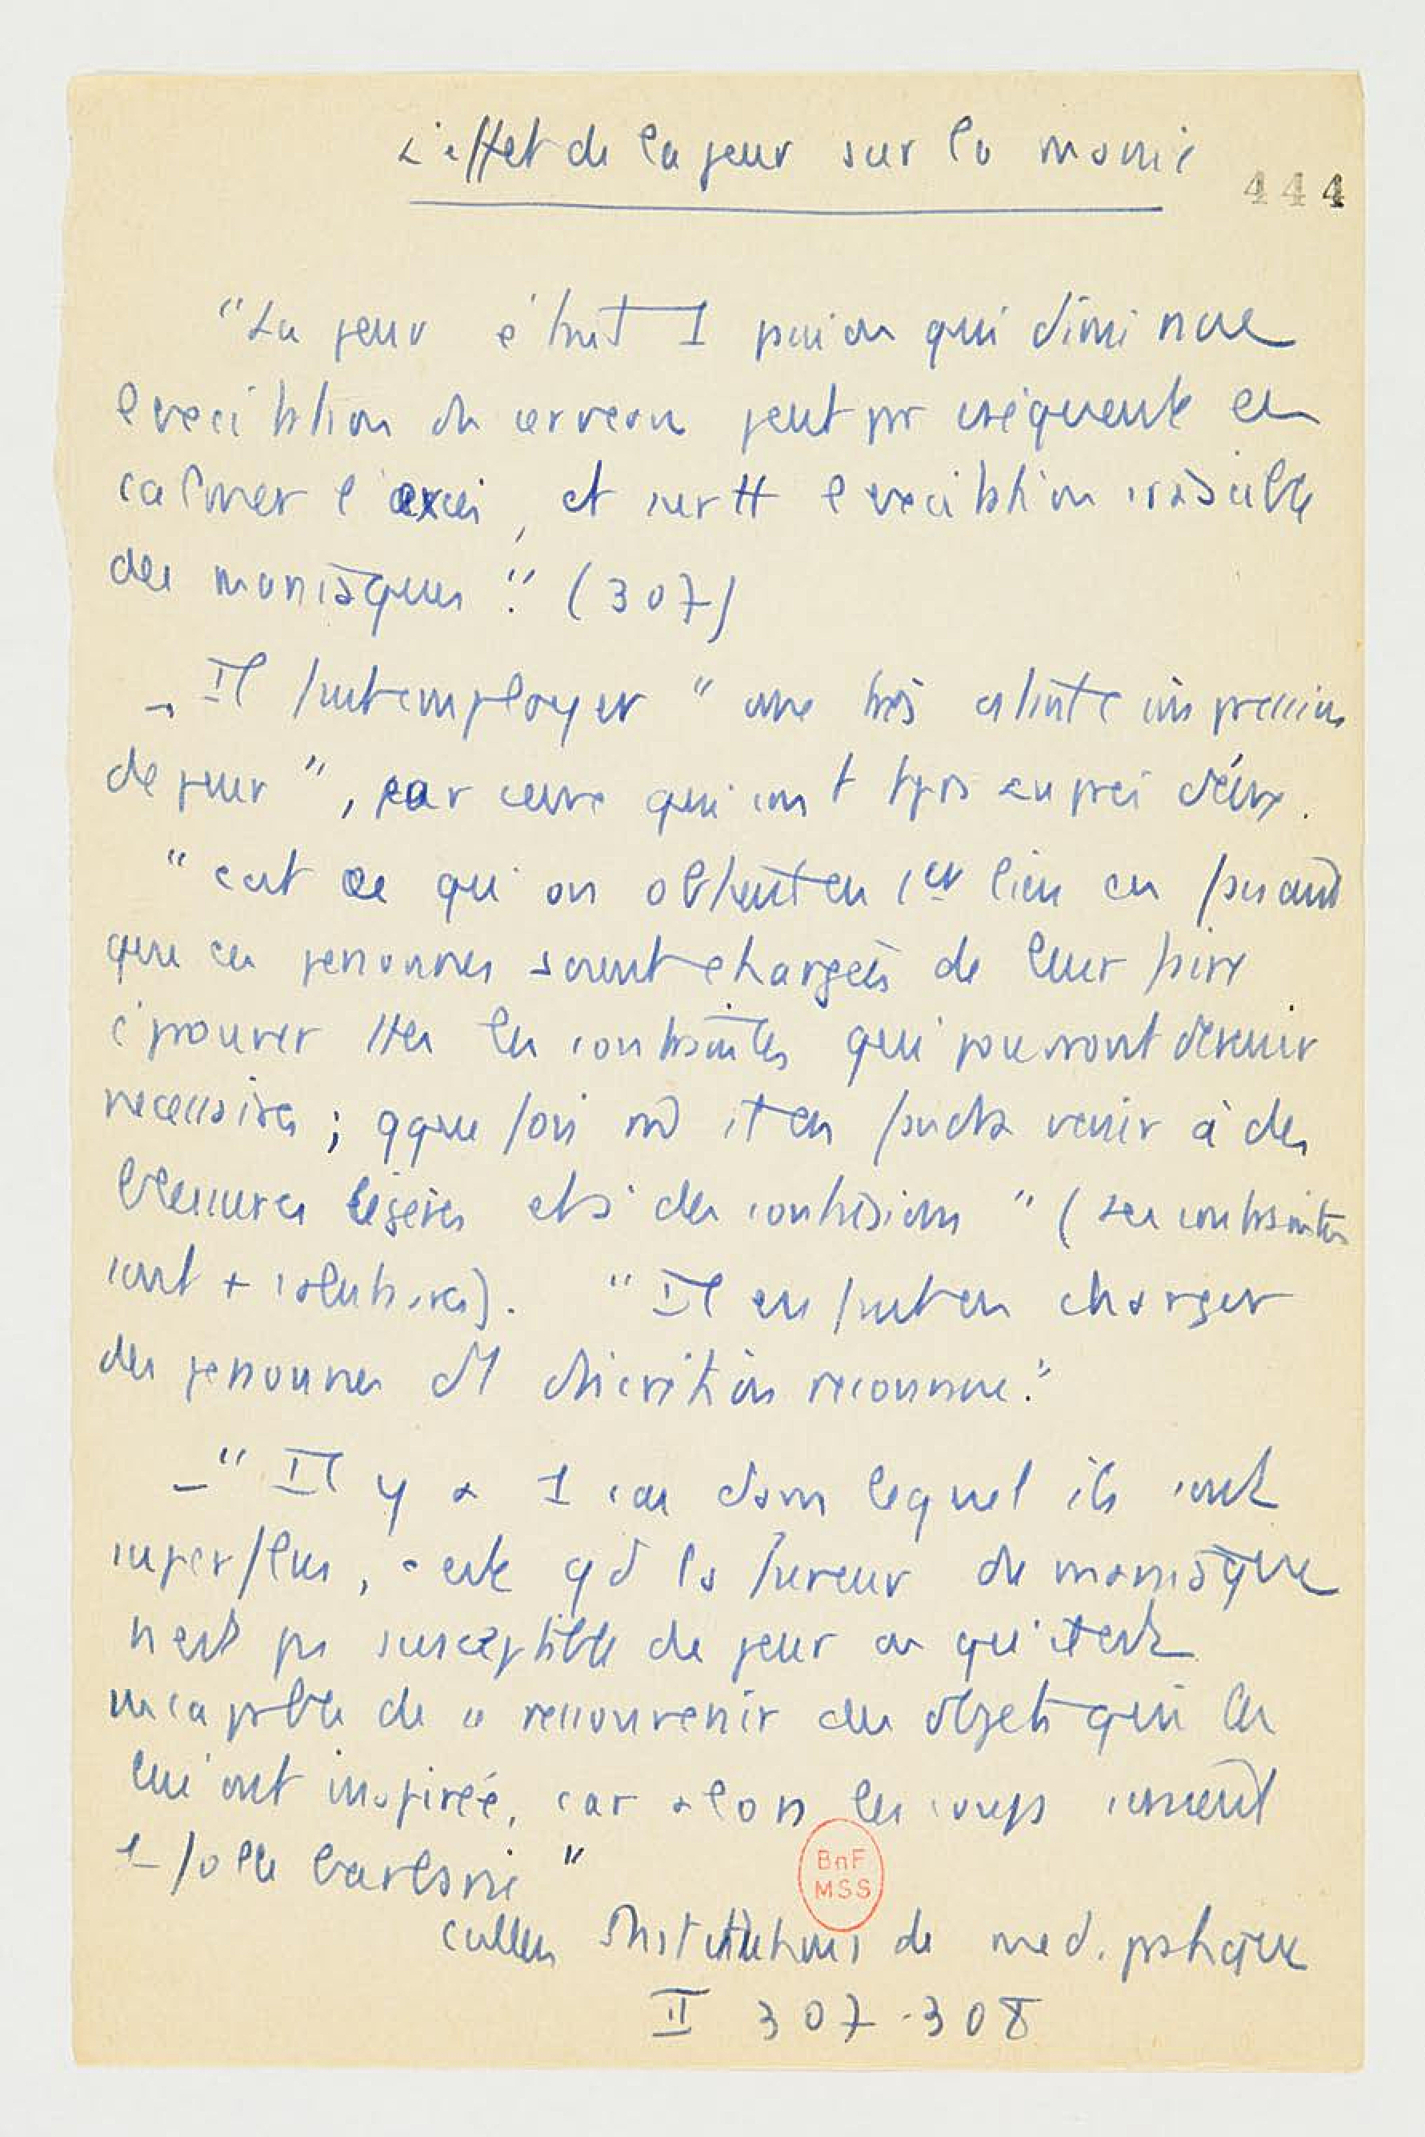 L'effet de la peur sur la manie
444
"La peur étant 1 passion qui diminue
l'excitation du cerveau peut pr conséquent en
calmer l'excès, et surtt l'excitation irascible
des maniaques." (307)
- Il faut employer "une très constante impression
de peur", par ceux qui sont tjrs auprès d'eux.
"c'est ce qu'on obtient en 1er lieu en faisant
que ces personnes soient chargées de leur faire
éprouver ttes les contraintes qui pourront devenir
nécessaires; qqu fois md il en faudra venir à des
blessures légères et à des contusions" (Les contraintes
sont + salutaires). "Il en faut en charger
des personnes d'1 discrétion reconnue."
- "Il y a 1 cas dans lequel ils sont
superflus, c'est qd la fureur du maniaque
n'est pas susceptible de peur ou qu'il est
incapable de se ressouvenir des objets qui la
lui ont inspirée, car alors les coups seraient
1 folle barbarie"
BnF
MSS
Cullen Institutions de med. pratique
II 307-308